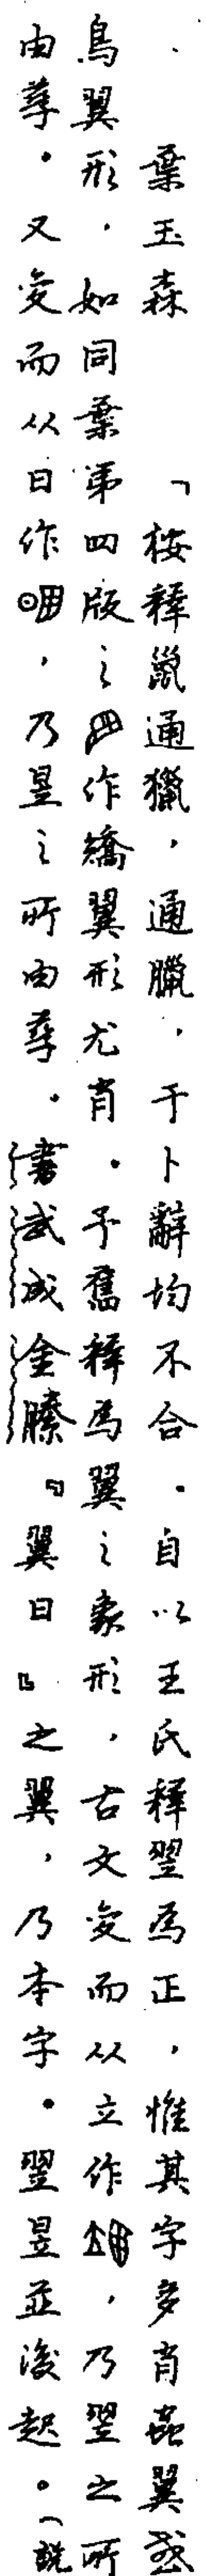 葉玉森　「桉釋鼠通獵，通臘，于卜辭均不合。自以王氏釋翌為正，惟其字多肖蟲翼或
鳥翼形，如同葉第四版之作矯翼形尤肖。予舊釋為翼之象形，古文变而从立作，乃翌之所
由孳。又変而从日作，乃昱之所由孳。書武成金縢『翼日』之翼，乃本字。翌昱並後起。（說